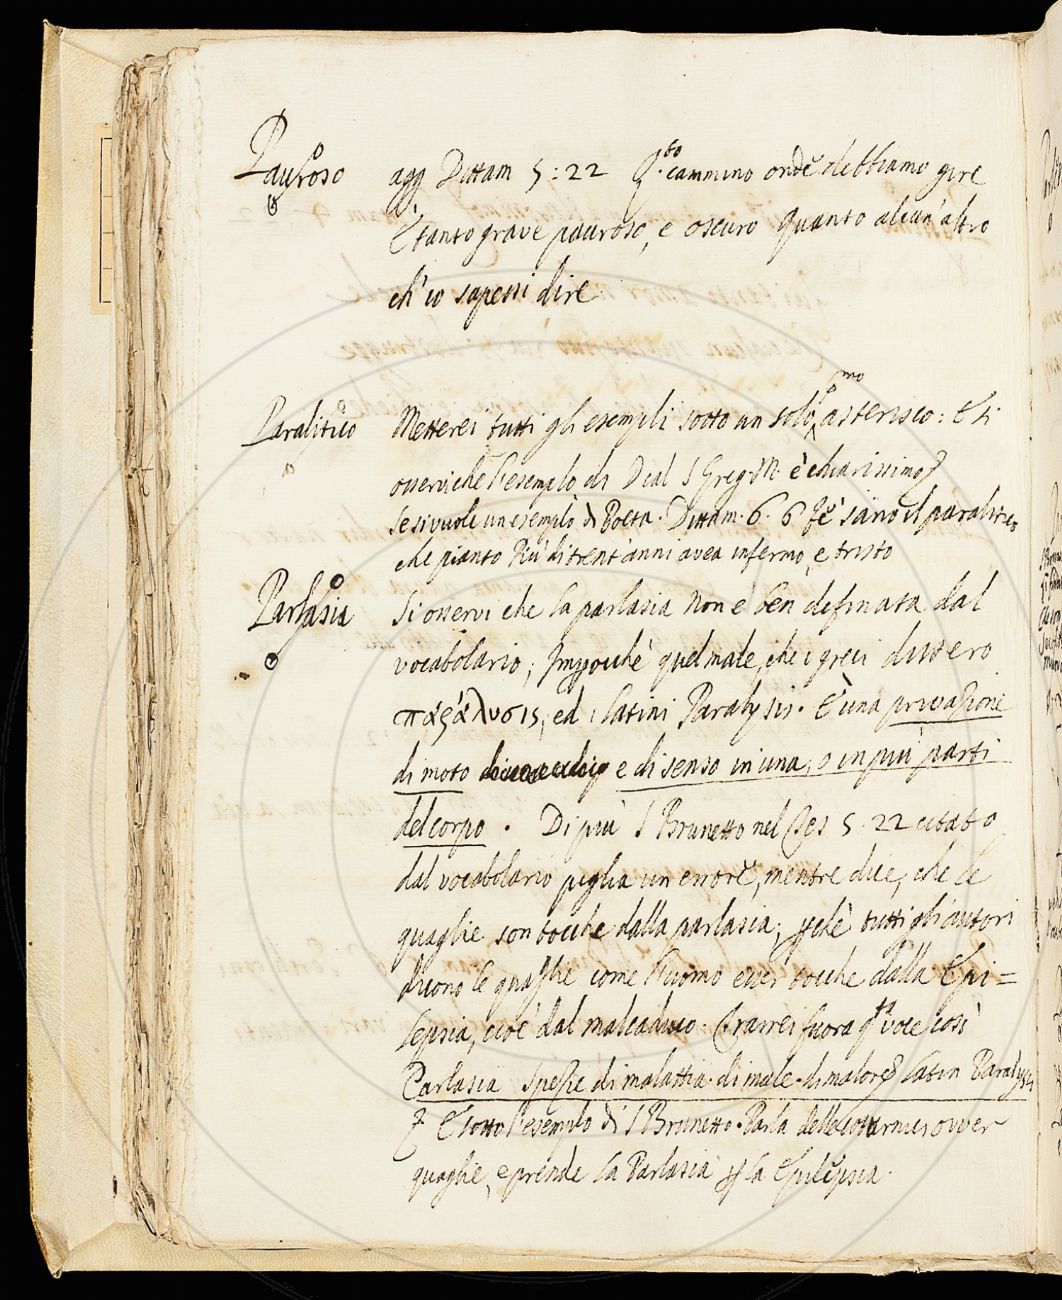 Pauroso agg Dittam 5:22 Q.sto cammino onde debbiamo gire
E' tanto grave pauroso, e oscuro quanto alcun'altro
ch'io sapessi dire
Paralitico Metterei tutti gli esempli sotto un solo pmo asterisco: E si
osservi che l'esemplo di Dial S Greg. M. è chiarissimo
se si vuole un esemplo di Poeta. Dittam. 6. 6 Fè sano il paralitico
che pianto più di trent'anni avea infermo, e tristo
Parlasia Si osservi che la parlasia non è ben definata dal
vocabolario; Imppochè quel male, che i greci dissero
παράλυσις, ed i latini Paralysis. È una privazione
di moto e di senso in una, o in più parti
del corpo. Di più S Brunetto nel Tes 5. 22 citato
dal vocabolario piglia un errore, mentre dice, che le
quaglie son tocche dalla parlasia; pchè tutti gli autori
dicono le quaglie come l'uomo esser tocche dalla Epi=
lepsia, cioè dal malcaduco. Trarrei fuora q.ta voce così
Parlasia Spezie di malattia. di male. di malore Latin Paralysis
E sotto l'esemplo di S Brunetto. Parla delle coturnici ovver
quaglie, e prende la Parlasia p la Epilepsia.